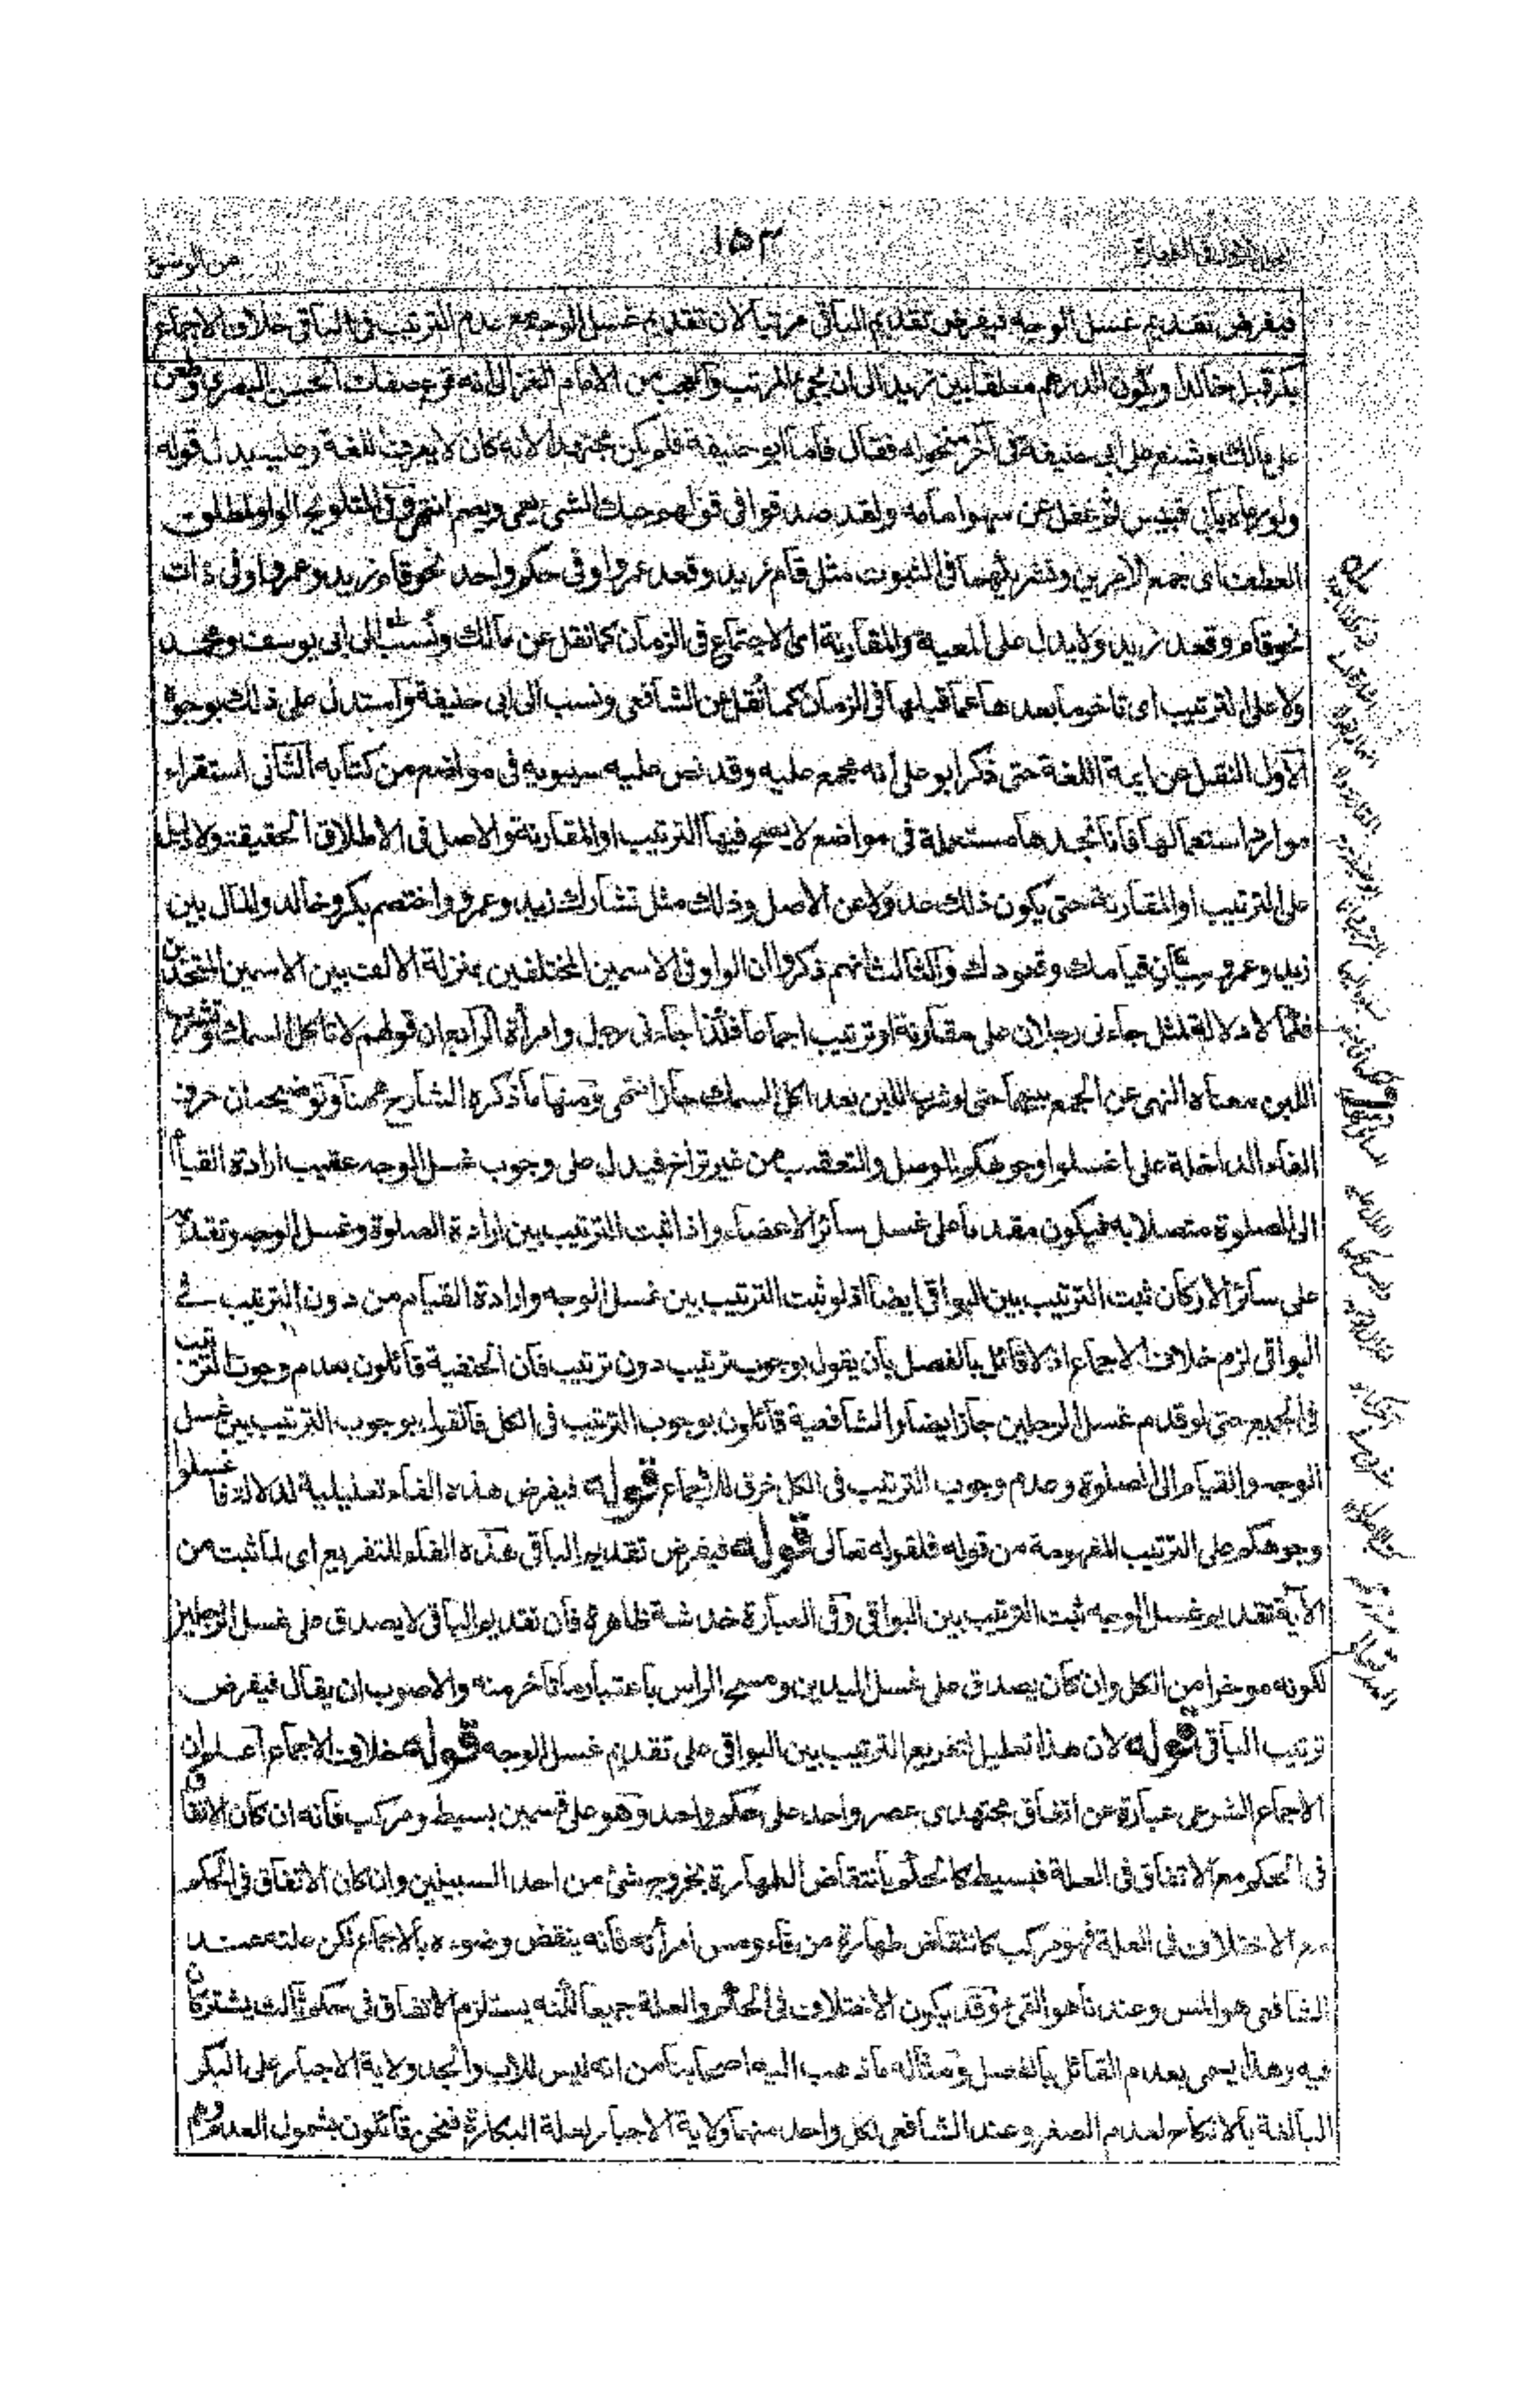 ١٥٣
فيفرض تقديم غسل الوجه فيفرض تقديم الباقى مرتبا لان تقديم غسل الوجه مع عدم الترتيب فى الباقى خلاف الاجماع
بكر قبل خالد او يكون الدرهم معلقا بين زيد الى ان يجئ المرتب والعجب من الامام الغزالى انه مع صفات الحسن البصرى وطعن
على مالك وشنع على ابى حنيفة فى آخر منخوله فقال فاما ابو حنيفة فلم يكن مجتهدا لانه كان لا يعرف اللغة وعليه يدل قوله
ولو رماه بابى قبيس ثم غفل عن سهو امامه ولقد صدقوا فى قولهم حبك الشئ يعمى ويصم انتهى وفى التلويح الواو لمطلق
العطف اى جمع الامرين وتشريكهما فى الثبوت مثل قام زيد وقعد عمرو او فى حكم واحد نحو قام زيد وعمرو او فى ذات
نحو قام وقعد زيد ولا يدل على المعية والمقارنة اى الاجتماع فى الزمان كما نقل عن مالك ونسب الى ابى يوسف ومحمد
ولا على الترتيب اى تاخر ما بعدها عما قبلها فى الزمان كما نقل عن الشافعى ونسب الى ابى حنيفة واستدل على ذلك بوجوه
الاول النقل عن ايمة اللغة حتى ذكر ابو على انه مجمع عليه وقد نص عليه سيبويه فى مواضع من كتابه الثانى استقراء
موارد استعمالها فانا نجدها مستعملة فى مواضع لا يصح فيها الترتيب او المقارنة والاصل فى الاطلاق الحقيقة ولا دليل
على الترتيب او المقارنة حتى يكون ذلك عدولا عن الاصل وذلك مثل تشارك زيد وعمرو واختصم بكر وخالد والمال بين
زيد وعمرو وسيان قيامك وقعودك والثالث انهم ذكروا ان الواو فى الاسمين المختلفين بمنزلة الالف بين الاسمين المتحدين
فكما لا دلالة لمثل جاءنى رجلان على مقارنة او ترتيب اجماعا فكذا جاءنى رجل وامرأة الرابع ان قولهم لا تاكل السمك وتشرب
اللبن معناه النهى عن الجمع بينهما حتى لو شرب اللبن بعد اكل السمك جاز انتهى ومنها ما ذكره الشارح ههنا وتوضيحه ان حرف
الفاء الداخلة على اغسلوا وجوهكم للوصل والتعقيب من غير تراخ فيدل على وجوب غسل الوجه عقيب ارادة القيام
الى الصلوة متصلا به فيكون مقدما على غسل سائر الاعضاء واذا ثبت الترتيب بين ارادة الصلوة وغسل الوجه وتقدمه
على سائر الاركان ثبت الترتيب بين البواقى ايضا اذ لو ثبت الترتيب بين غسل الوجه وارادة القيام من دون الترتيب فى
البواقى لزم خلاف الاجماع اذ لا قائل بالفصل بان يقول بوجوب ترتيب دون ترتيب فان الحنفية قائلون بعدم وجوب الترتيب
فى الجميع حتى لو قدم غسل الرجلين جاز ايضا والشافعية قائلون بوجوب الترتيب فى الكل فالقول بوجوب الترتيب بين غسل
الوجه والقيام الى الصلوة وعدم وجوب الترتيب فى الكل خرق للاجماع قوله فيفرض هذه الفاء تعليلية لدلالة فاغسلوا
وجوهكم على الترتيب المفهومة من قوله فلقوله تعالى قوله فيفرض تقديم الباقى هذه الفاء للتفريع اى لما ثبت من
الآية تقديم غسل الوجه ثبت الترتيب بين البواقى وفى العبارة خدشة ظاهرة فان تقديم الباقى لا يصدق على غسل الرجلين
لكونه موخرا من الكل وان كان يصدق على غسل اليدين ومسح الراس باعتبار ما تاخر منه والاصوب ان يقال فيفرض
ترتيب الباقى قوله لان هذا تعليل لتفريع الترتيب بين البواقى على تقديم غسل الوجه قوله خلاف الاجماع اعلم ان
الاجماع الشرعى عبارة عن اتفاق مجتهدى عصر واحد على حكم واحد وهو على قسمين بسيط ومركب فانه ان كان الاتفاق
فى الحكم مع الاتفاق فى العلة فبسيط كالحكم بانتقاض الطهارة بخروج شئ من احد السبيلين وان كان الاتفاق فى الحكم
مع الاختلاف فى العلة فهو مركب كانتقاض طهارة من قاء ومس امرأته فانه ينقض وضوءه بالاجماع لكن علته عند
الشافعى هو المس وعندنا هو القئ وقد يكون الاختلاف فى الحكم والعلة جميعا لكنه يستلزم الاتفاق فى حكم ثالث يشتركان
فيه وهذا يسمى بعدم القائل بالفصل ومثاله ما ذهب اليه اصحابنا من انه ليس للاب والجد ولاية الاجبار على البكر
البالغة بالانكاح لعدم الصغر وعند الشافعى لكل واحد منهما ولاية الاجبار لعلة البكارة فنحن قائلون بشمول العدم وهم